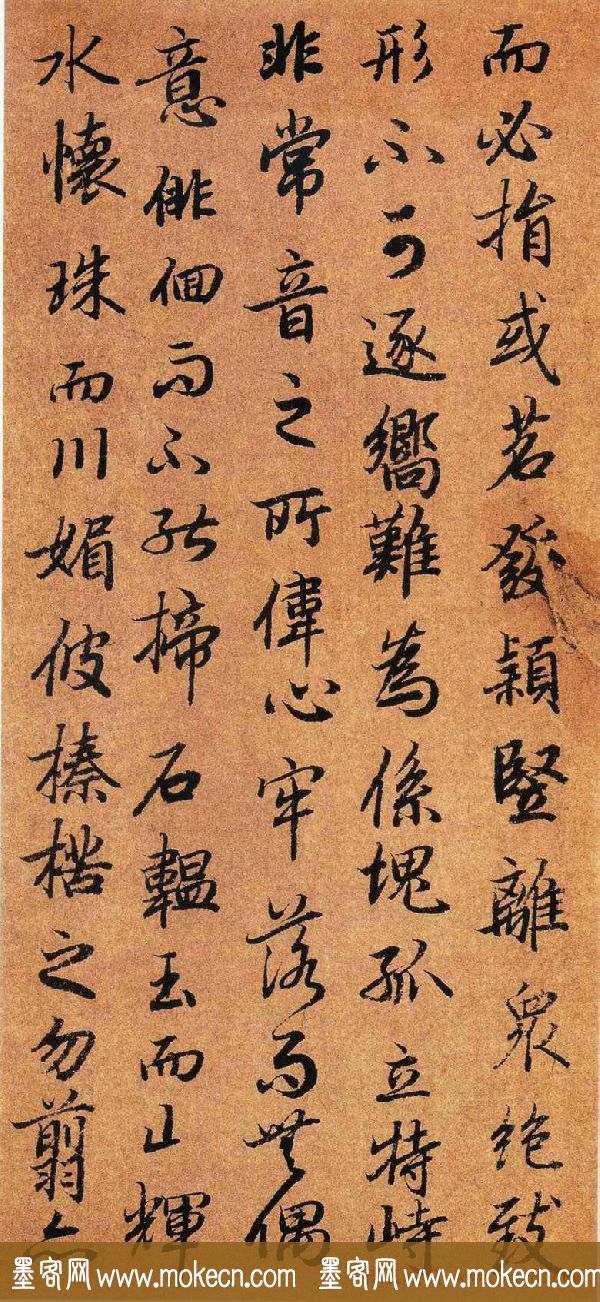 而必捐或苕發穎竪離衆絶致
形不可逐嚮難為係塊孤立特峙
非常音之所偉心牢落而無偶
意俳佪而不能揥石韞玉而山輝
水懷珠而川媚彼榛楛之勿翦
墨客网 www.mokecn.com 墨客网 www.mokecn.com